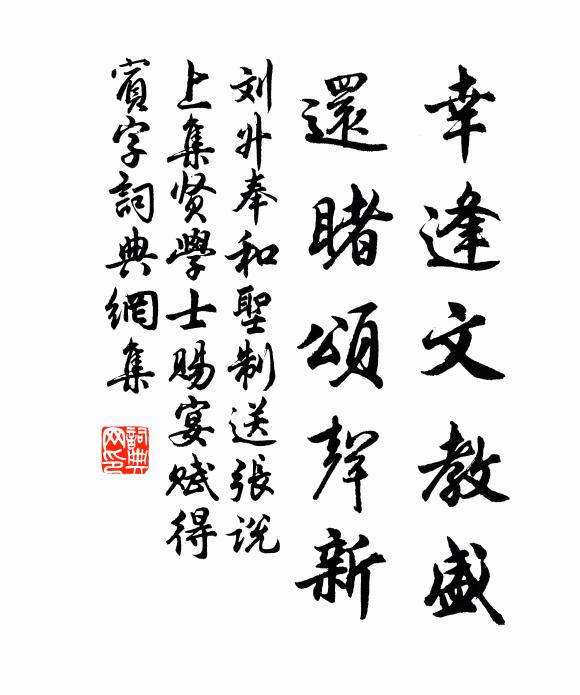 幸逢文教盛
還睹頌聲新
刘升奉和聖制送張说
上集贤學士賜宴赋得
賓字詞典網集
詞典
网印